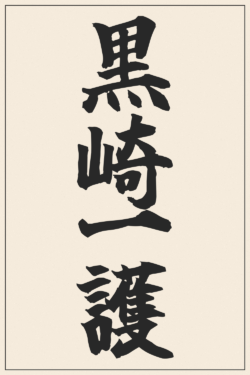 黒崎一護